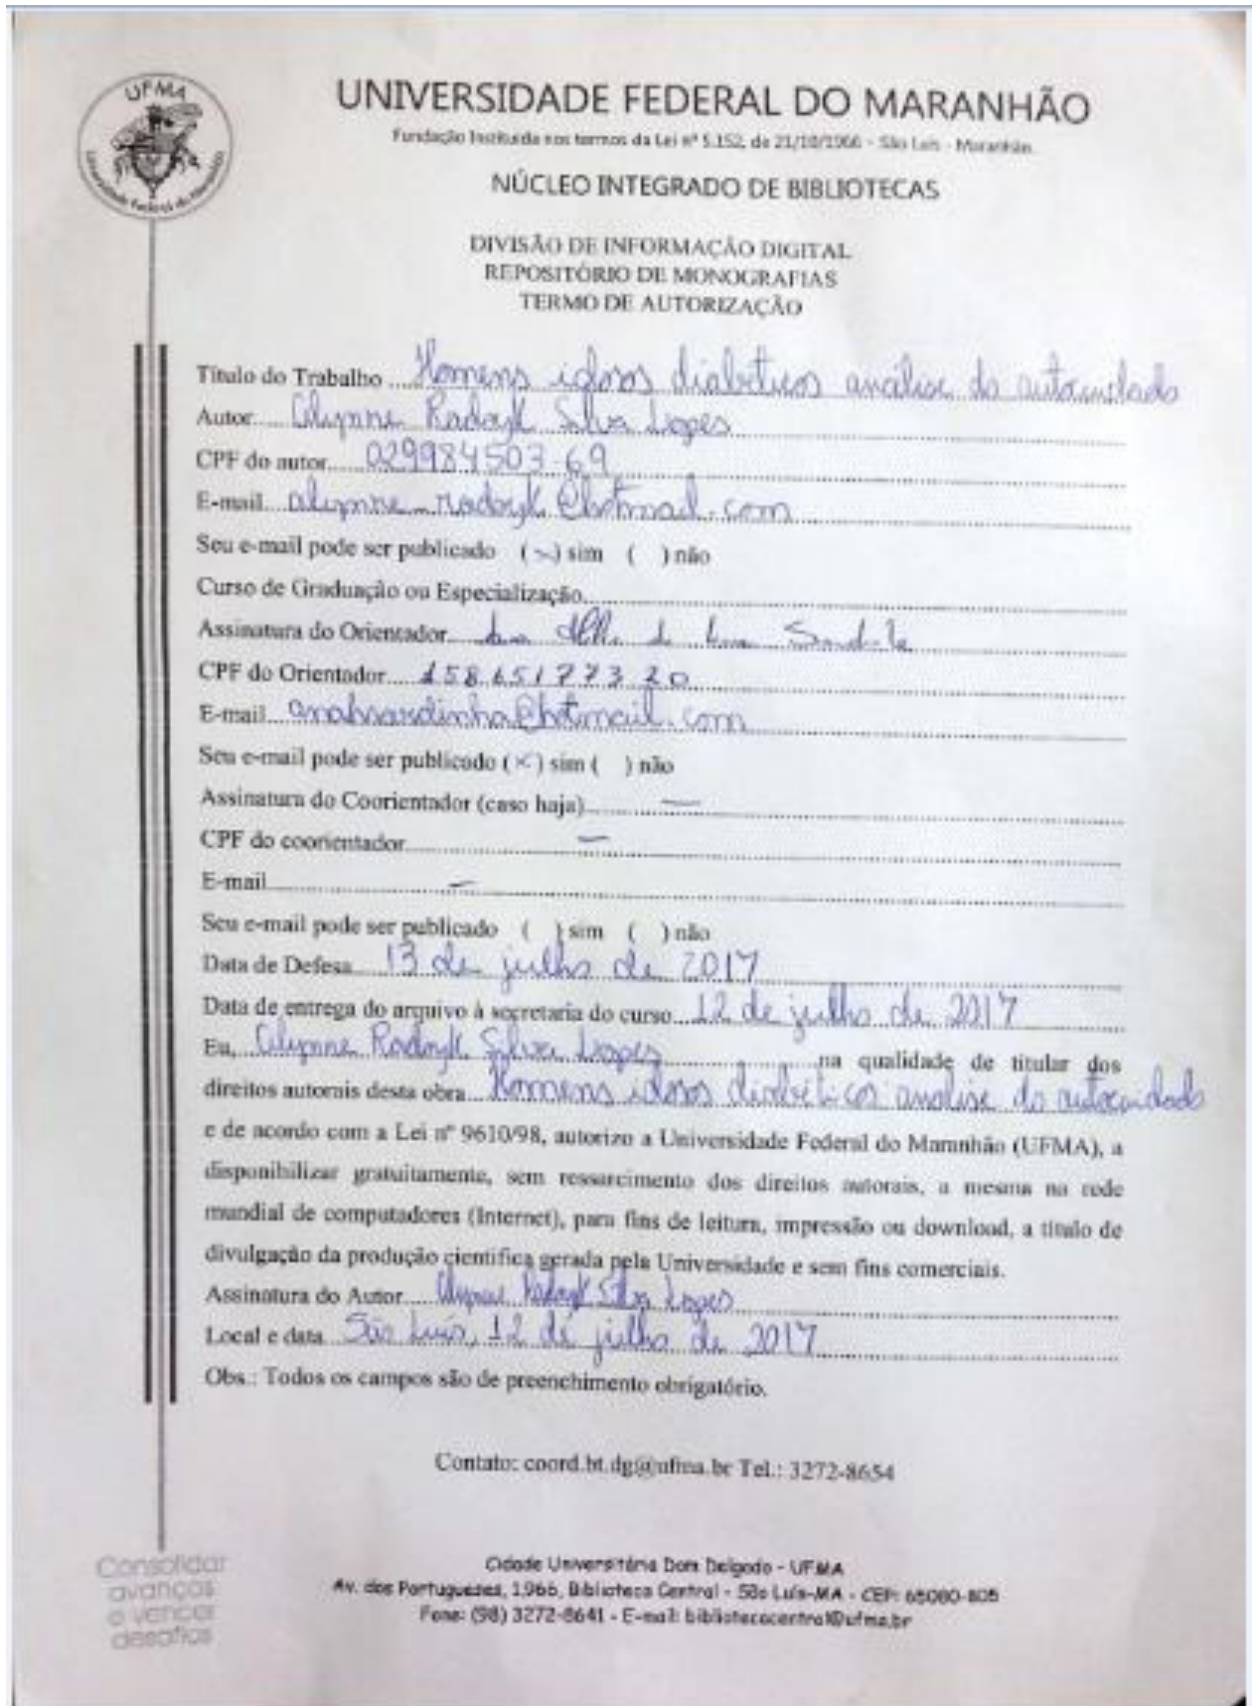 UFMA
Universidade Federal do Maranhão
UNIVERSIDADE FEDERAL DO MARANHÃO
Fundação Instituída nos termos da Lei nº 5.152, de 21/10/1966 - São Luís - Maranhão.
NÚCLEO INTEGRADO DE BIBLIOTECAS
DIVISÃO DE INFORMAÇÃO DIGITAL
REPOSITÓRIO DE MONOGRAFIAS
TERMO DE AUTORIZAÇÃO
Título do Trabalho Homens idosos diabéticos análise do autocuidado
Autor Alynne Radoyk Silva Lopes
CPF do autor 029984503-69
E-mail alynne_radoyk@hotmail.com
Seu e-mail pode ser publicado (x) sim ( ) não
Curso de Graduação ou Especialização
Assinatura do Orientador
CPF do Orientador
E-mail anahsardinha@hotmail.com
Seu e-mail pode ser publicado (x) sim ( ) não
Assinatura do Coorientador (caso haja) —
CPF do coorientador —
E-mail —
Seu e-mail pode ser publicado ( ) sim ( ) não
Data de Defesa 13 de julho de 2017
Data de entrega do arquivo à secretaria do curso 12 de julho de 2017
Eu, Alynne Radoyk Silva Lopes na qualidade de titular dos
direitos autorais desta obra Homens idosos diabéticos análise do autocuidado
e de acordo com a Lei nº 9610/98, autorizo a Universidade Federal do Maranhão (UFMA), a
disponibilizar gratuitamente, sem ressarcimento dos direitos autorais, a mesma na rede
mundial de computadores (Internet), para fins de leitura, impressão ou download, a título de
divulgação da produção científica gerada pela Universidade e sem fins comerciais.
Assinatura do Autor Alynne Radoyk Silva Lopes
Local e data São Luís, 12 de julho de 2017
Obs.: Todos os campos são de preenchimento obrigatório.
Contato: coord.bt.dg@ufma.br Tel.: 3272-8654
Consolidar
avanços
e vencer
desafios
Cidade Universitária Dom Delgado - UFMA
Av. dos Portugueses, 1966, Biblioteca Central - São Luís-MA - CEP: 65080-805
Fone: (98) 3272-8641 - E-mail: bibliotecacentral@ufma.br